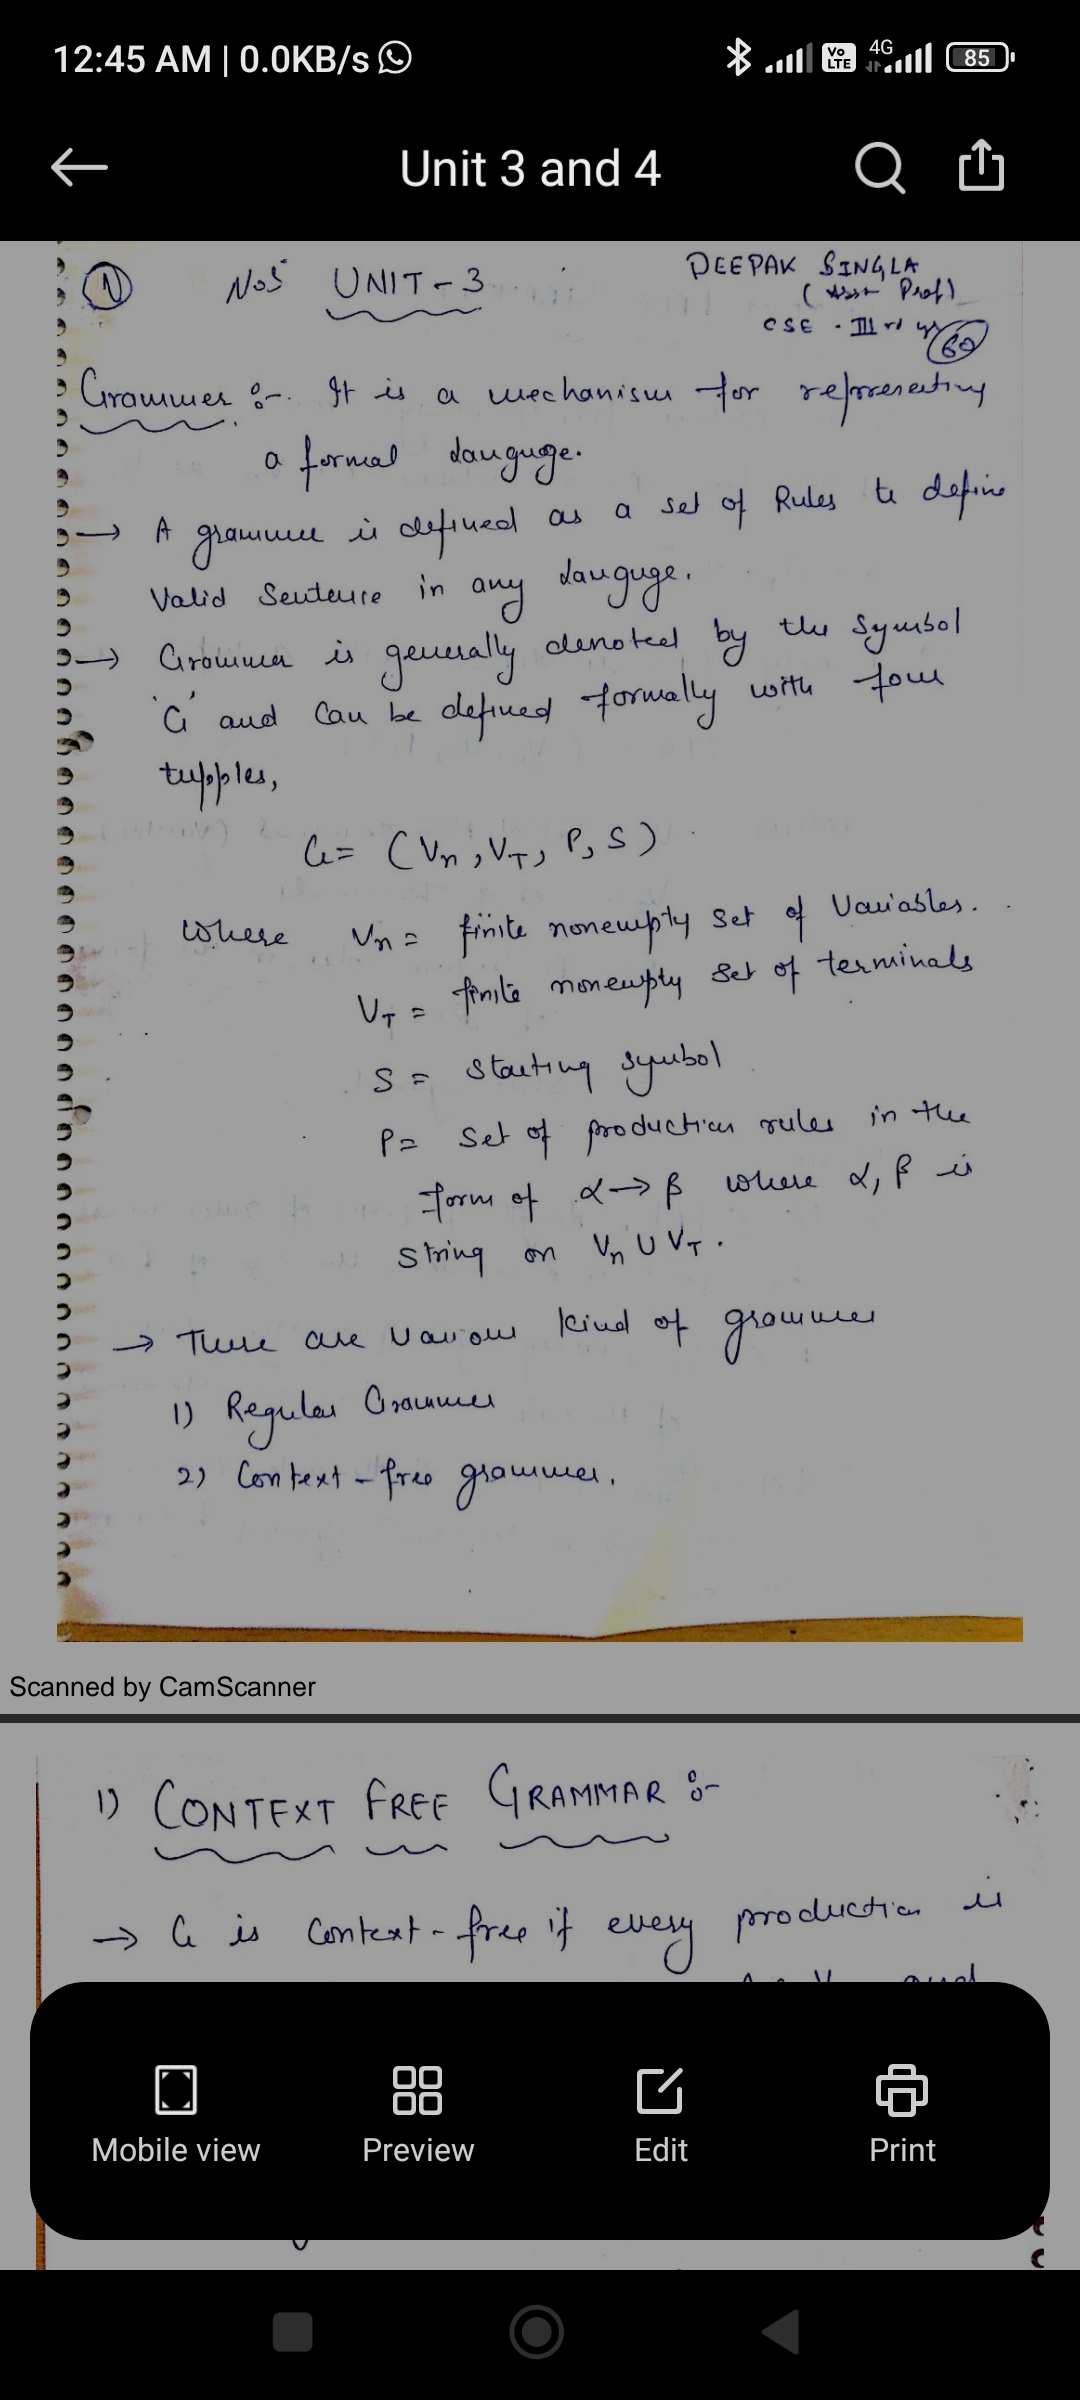 12:45 AM | 0.0KB/s
4G
Vo LTE
85
Unit 3 and 4
N
UNIT-3
DEEPAK SINGLA
(Asst Prof)
CSE - III rd yr
60
Grammer :-. It is a mechanism for representing
a formal Languge.
→ A grammer is defined as a set of Rules to define
Valid Sentence in any Languge.
→ Grammer is generally denoted by the Symbol
'G' and Can be defined formally with four
tupples,
G = (Vn, VT, P, S)
Where Vn = finite nonempty set of Variables.
VT = finite nonempty set of terminals
S = Starting symbol
P = Set of production rules in the
form of α → β where α, β is
string on Vn U VT.
→ There are various kind of grammer
1) Regular Grammer
2) Context-free grammer.
Scanned by CamScanner
1) CONTEXT FREE GRAMMAR :-
→ G is Context-free if every production is
and
Mobile view
Preview
Edit
Print